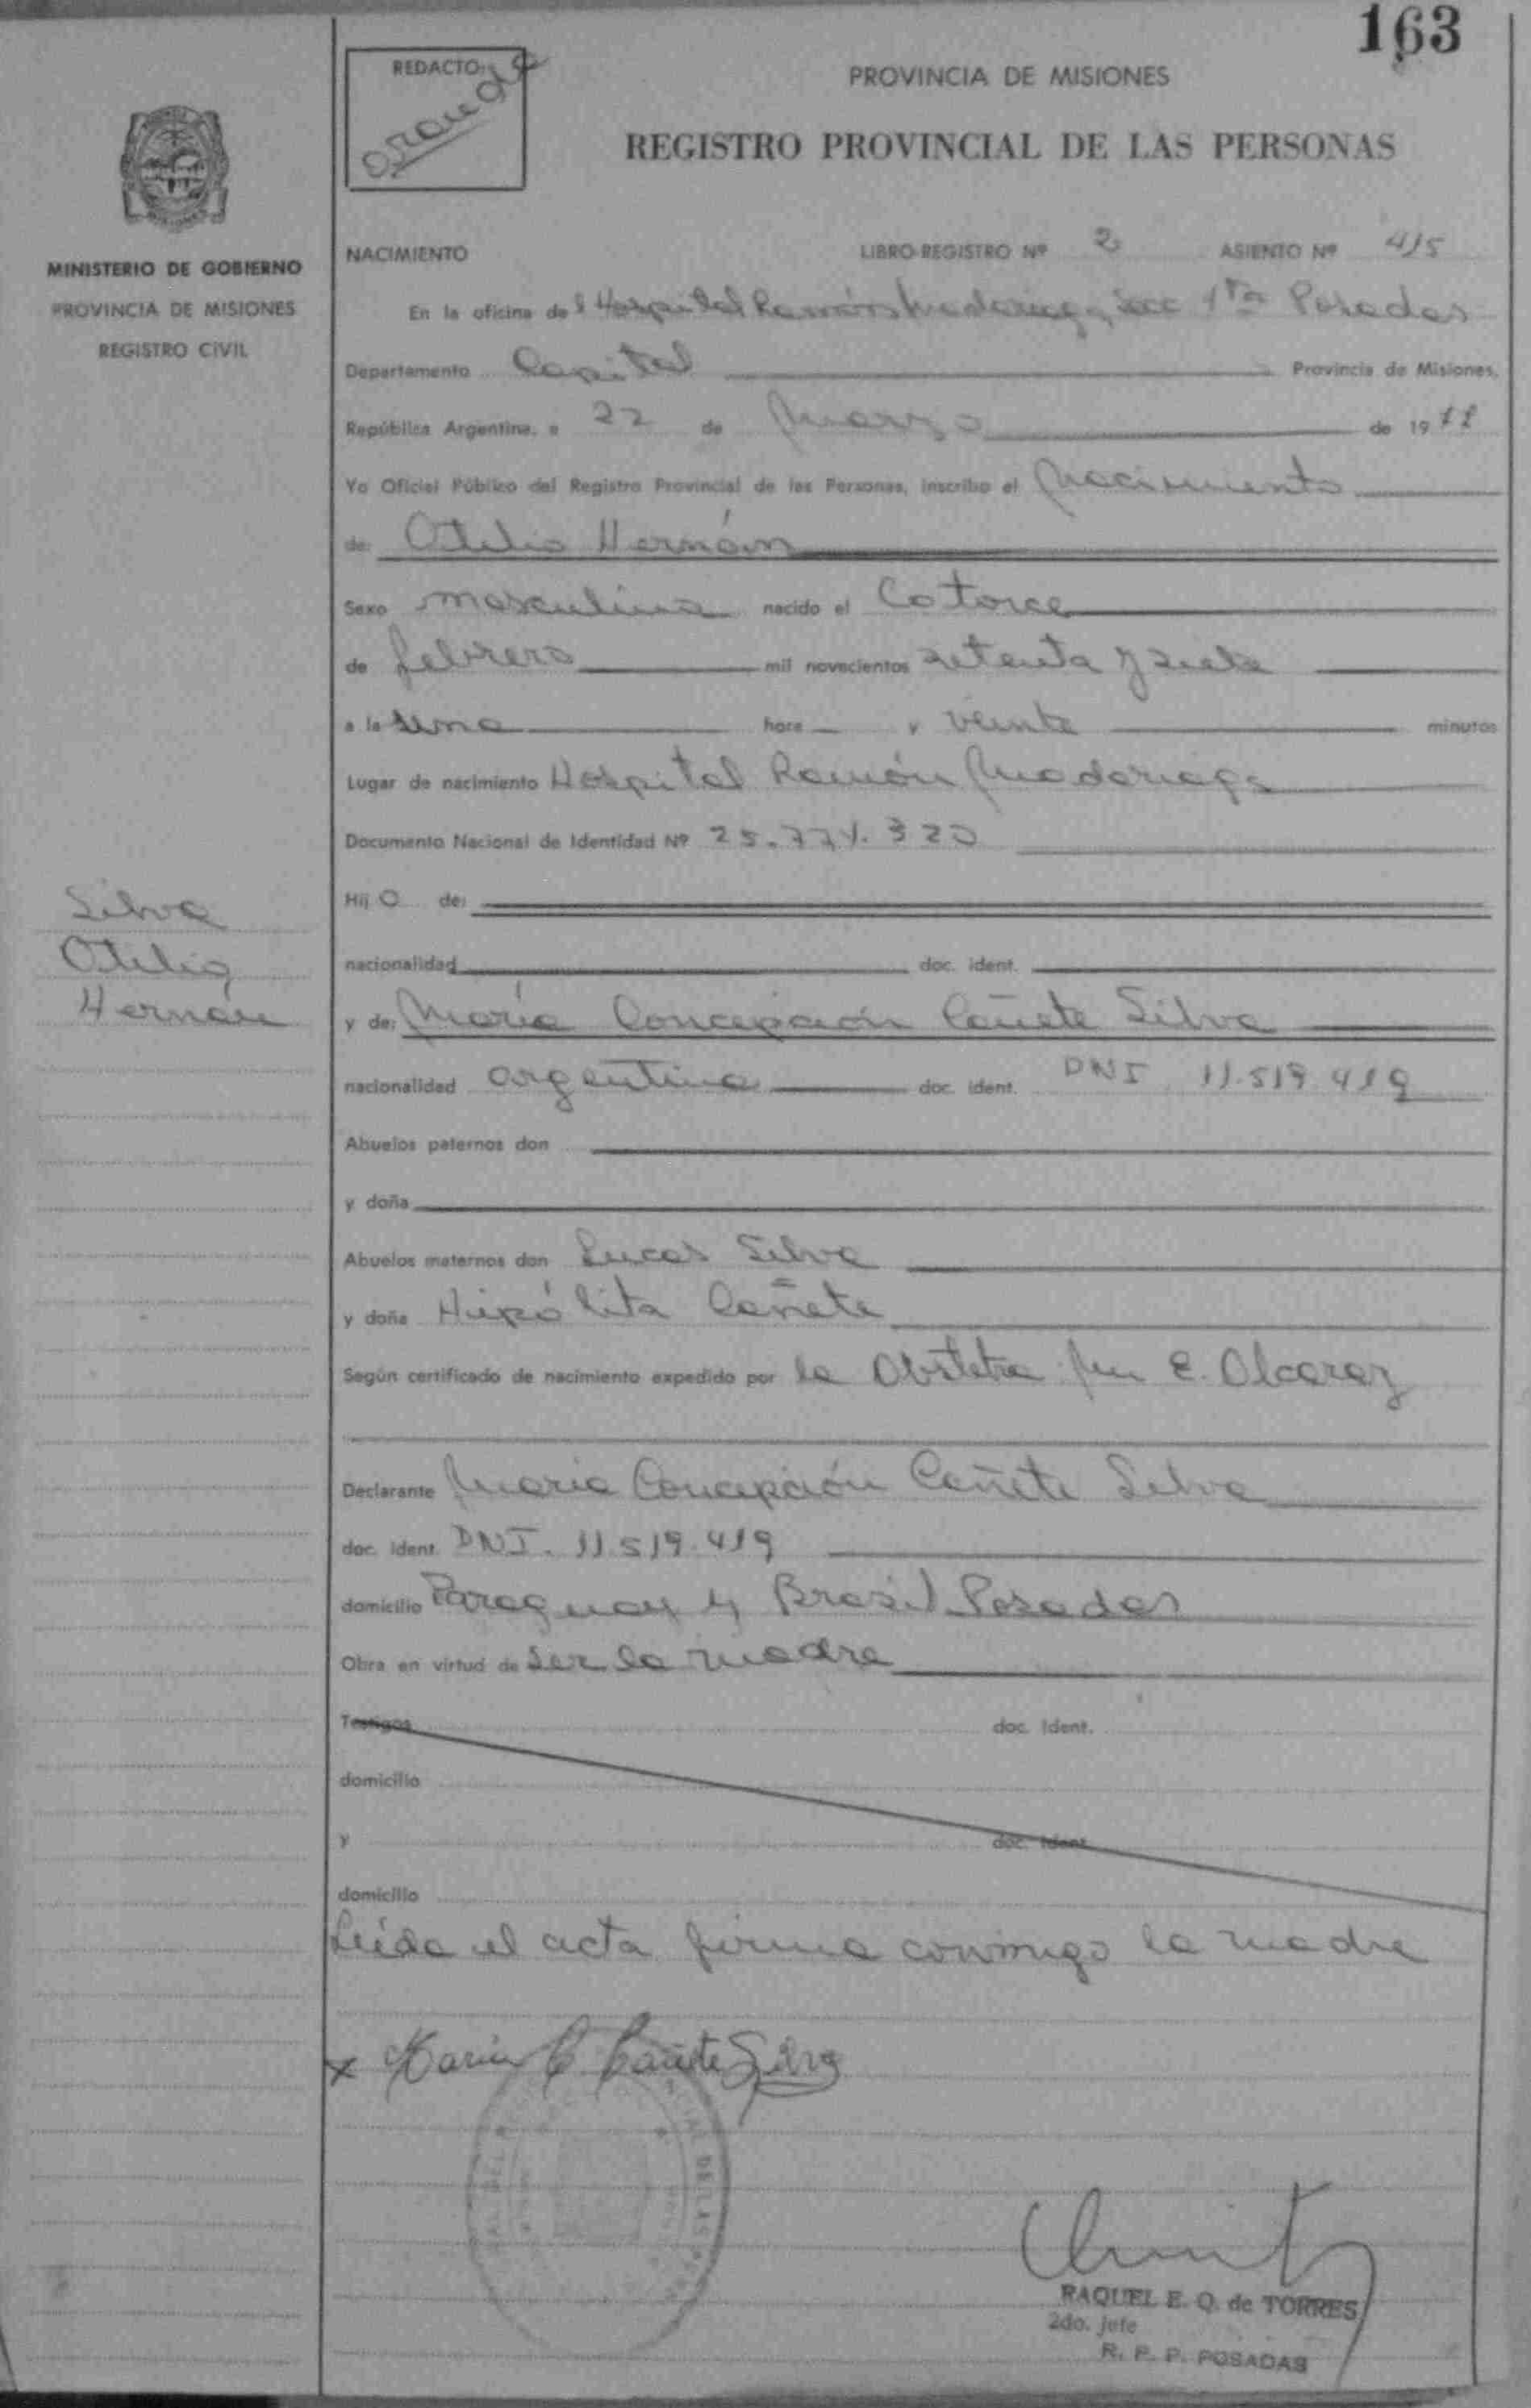 163
REDACTO:
PROVINCIA DE MISIONES
REGISTRO PROVINCIAL DE LAS PERSONAS
MINISTERIO DE GOBIERNO
PROVINCIA DE MISIONES
REGISTRO CIVIL
NACIMIENTO LIBRO-REGISTRO Nº 2 ASIENTO Nº 415
En la oficina del Hospital Ramón Madariaga Sec 1ra Posadas
Departamento Capital Provincia de Misiones,
República Argentina, a 22 de Marzo de 19
Yo Oficial Público del Registro Provincial de las Personas, inscribo el Nacimiento
de: Otilio Hernán
Sexo masculino nacido el Catorce
de febrero mil novecientos setenta y siete
a la una hora y veinte minutos
Lugar de nacimiento Hospital Ramón Madariaga
Documento Nacional de Identidad Nº 25.771.320
Silva
Otilio
Hernán
Hij o de:
nacionalidad doc. ident.
y de: María Concepción Cañete Silva
nacionalidad argentina doc. ident. DNI 11.519.419
Abuelos paternos don
y doña
Abuelos maternos don Lucas Silva
y doña Hipólita Cañete
Según certificado de nacimiento expedido por la Obstetra E. Alcaraz
Declarante María Concepción Cañete Silva
doc. ident. DNI. 11.519.419
domicilio Paraguay y Brasil Posadas
Obra en virtud de ser la madre
Testigos doc. Ident.
domicilio
y doc. Ident.
domicilio
Leída el acta firma conmigo la madre
x Maria C Cañete Silva
RAQUEL E. Q. de TORRES
2do. Jefe
R. P. P. POSADAS